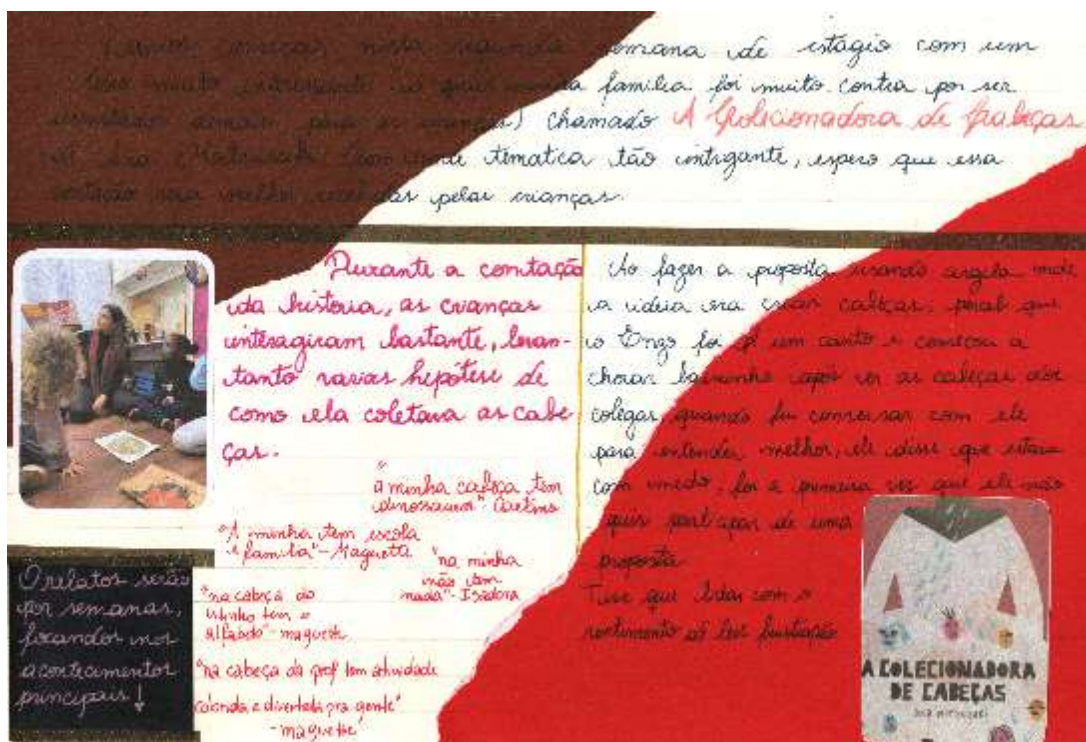 Iremos começar nesta segunda semana de estágio com um
livro muito interessante (o qual minha família foi muito contra por ser
para as crianças) chamado A Colecionadora de Cabeças
de Ana Matsusaki. Com uma temática tão intrigante, espero que essa
contação seja melhor pelas crianças.
Durante a contação
da história, as crianças
interagiram bastante, levan-
tanto varias hepótese de
como ela coletava as cabe-
ças.
"a minha cabeça tem
dinossauros"-
"A minha tem escola
e família" - Maguetta
"na minha
não tem
nada" - Isadora
"na cabeça do
tem o
alfabeto" - maguette
"na cabeça da prof tem atividade
colorida e divertida pra gente"
- maguette
Ao fazer a proposta usando argila onde
a ideia era criar cabeças, percebi que
o Enzo foi p/ um canto e começou a
chorar baixinho após ver as cabeças dos
colegas, quando fui conversar com ele
para entender melhor, ele disse que estava
com medo, foi a primeira vez que ele não
quis participar de uma
proposta.
Tive que lidar com o
sentimento de frustração
O relatos serão
por semanas,
focandos nos
acontecimentos
principais!
A COLECIONADORA
DE CABEÇAS
ANA MATSUSAKI